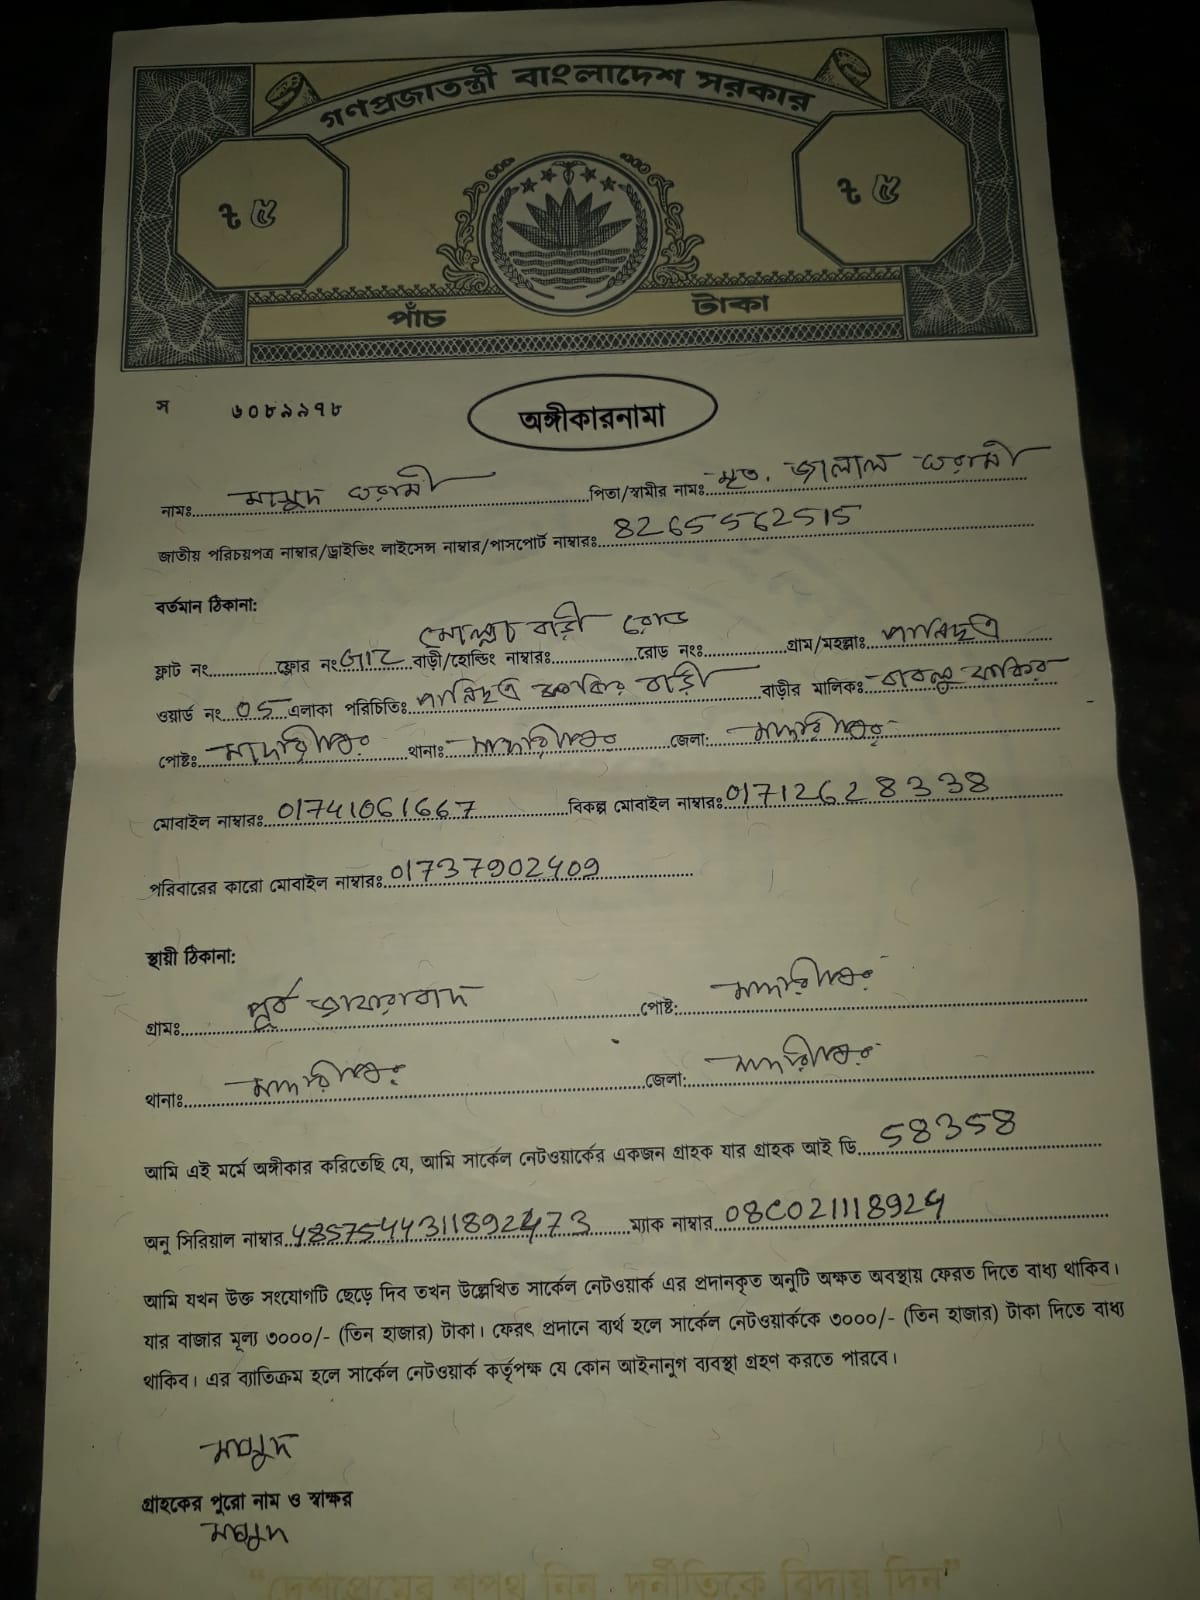 গণপ্রজাতন্ত্রী বাংলাদেশ সরকার
৳ ৫ ৳ ৫
পাঁচ টাকা
স ৬০৮৯৯৭৮
অঙ্গীকারনামা
নামঃ মাসুদ পিতা/স্বামীর নামঃ মৃত. জালাল
জাতীয় পরিচয়পত্র নাম্বার/ড্রাইভিং লাইসেন্স নাম্বার/পাসপোর্ট নাম্বারঃ 8265562515
বর্তমান ঠিকানা:
ফ্লাট নং ফ্লোর নং বাড়ী/হোল্ডিং নাম্বারঃ মোল্লা বাড়ী রোড রোড নংঃ গ্রাম/মহল্লাঃ পানিছত্র
ওয়ার্ড নং 05 এলাকা পরিচিতিঃ পানিছত্র ফকির বাড়ী বাড়ীর মালিকঃ বাবলু ফকির
পোষ্টঃ মাদারীপুর থানাঃ মাদারীপুর জেলা: মাদারীপুর
মোবাইল নাম্বারঃ 01741061667 বিকল্প মোবাইল নাম্বারঃ 01712628338
পরিবারের কারো মোবাইল নাম্বারঃ 01737902409
স্থায়ী ঠিকানা:
গ্রামঃ পূর্ব পোষ্ট: মাদারীপুর
থানাঃ মাদারীপুর জেলা: মাদারীপুর
আমি এই মর্মে অঙ্গীকার করিতেছি যে, আমি সার্কেল নেটওয়ার্কের একজন গ্রাহক যার গ্রাহক আই ডি 58358
অনু সিরিয়াল নাম্বার 4857544311892473 ম্যাক নাম্বার 08C021118924
আমি যখন উক্ত সংযোগটি ছেড়ে দিব তখন উল্লেখিত সার্কেল নেটওয়ার্ক এর প্রদানকৃত অনুটি অক্ষত অবস্থায় ফেরত দিতে বাধ্য থাকিব।
যার বাজার মূল্য ৩০০০/- (তিন হাজার) টাকা। ফেরৎ প্রদানে ব্যর্থ হলে সার্কেল নেটওয়ার্ককে ৩০০০/- (তিন হাজার) টাকা দিতে বাধ্য
থাকিব। এর ব্যাতিক্রম হলে সার্কেল নেটওয়ার্ক কর্তৃপক্ষ যে কোন আইনানুগ ব্যবস্থা গ্রহণ করতে পারবে।
মাসুদ
গ্রাহকের পুরো নাম ও স্বাক্ষর
মাসুদ
"দেশপ্রেমের শপথ নিন, দুর্নীতিকে বিদায় দিন"